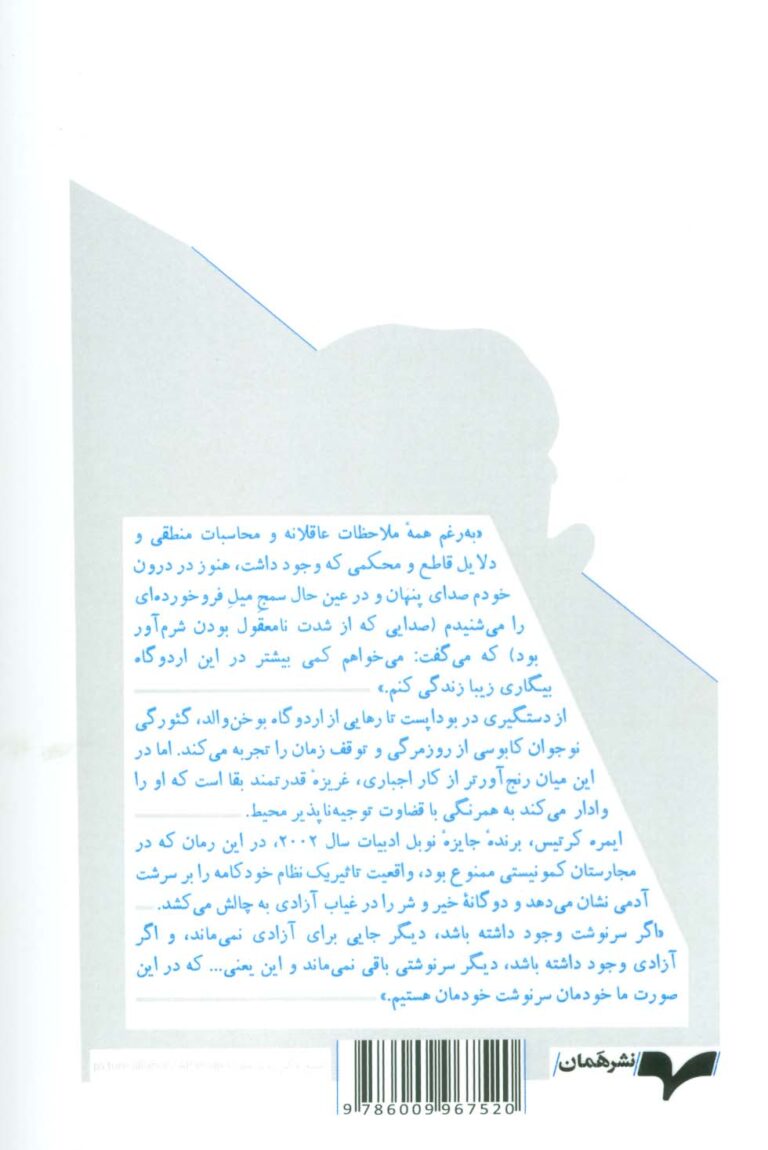 «به‌رغم همهٔ ملاحظات عاقلانه و محاسبات منطقی و
دلایل قاطع و محکمی که وجود داشت، هنوز در درون
خودم صدای پنهان و در عین حال سمجِ میلِ فروخورده‌ای
را می‌شنیدم (صدایی که از شدت نامعقول بودن شرم‌آور
بود) که می‌گفت: می‌خواهم کمی بیشتر در این اردوگاه
بیگاری زیبا زندگی کنم.»
از دستگیری در بوداپست تا رهایی از اردوگاه بوخن‌والد، گئورگی
نوجوان کابوسی از روزمرگی و توقف زمان را تجربه می‌کند. اما در
این میان رنج‌آورتر از کار اجباری، غریزهٔ قدرتمند بقا است که او را
وادار می‌کند به همرنگی با قضاوت توجیه‌ناپذیر محیط.
ایمره کرتیس، برندهٔ جایزهٔ نوبل ادبیات سال ۲۰۰۲، در این رمان که در
مجارستان کمونیستی ممنوع بود، واقعیت تاثیر یک نظام خودکامه را بر سرشت
آدمی نشان می‌دهد و دوگانهٔ خیر و شر را در غیاب آزادی به چالش می‌کشد.
«اگر سرنوشت وجود داشته باشد، دیگر جایی برای آزادی نمی‌ماند، و اگر
آزادی وجود داشته باشد، دیگر سرنوشتی باقی نمی‌ماند و این یعنی... که در این
صورت ما خودمان سرنوشت خودمان هستیم.»
نشر هَمان
9 786009 967520